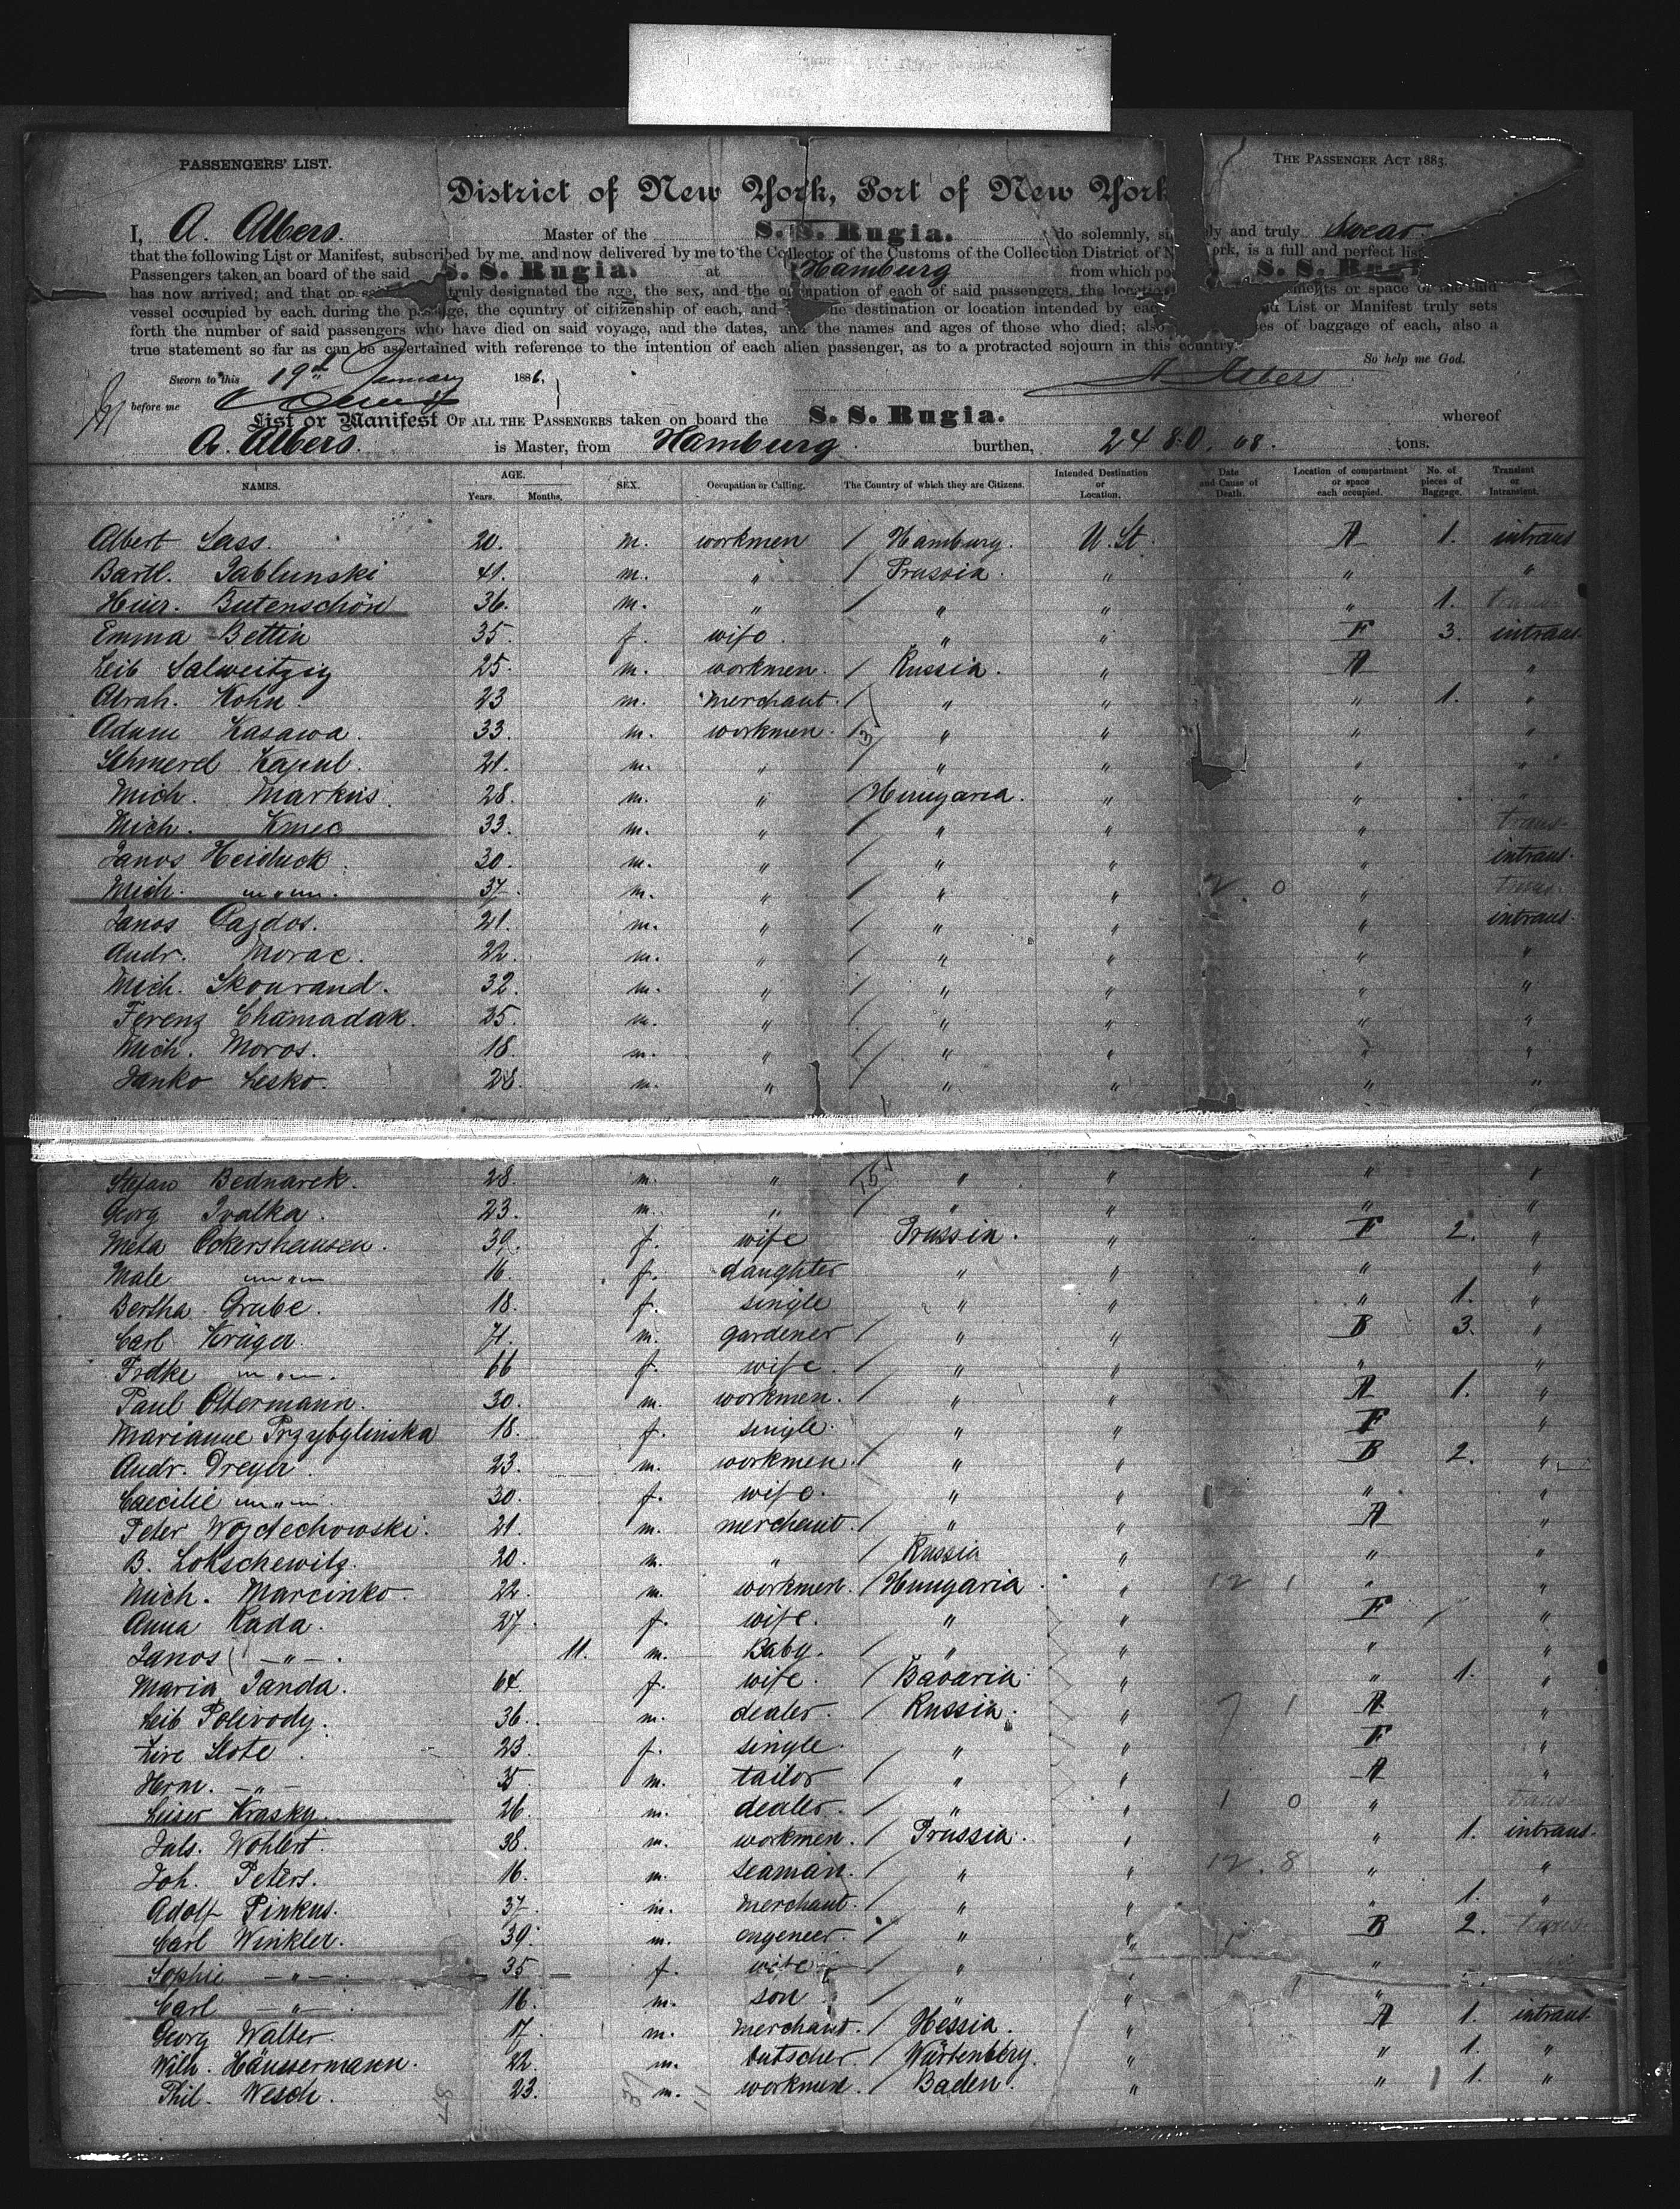 PASSENGERS' LIST.
THE PASSENGER ACT 1883.
District of New York, Port of New York
I, A. Albers. Master of the S. S. Rugia. do solemnly, si ly and truly Swear
that the following List or Manifest, subscribed by me, and now delivered by me to the Collector of the Customs of the Collection District of N ork, is a full and perfect list
Passengers taken an board of the said S. S. Rugia. at Hamburg from which po S. S. Rugi
has now arrived; and that on sa truly designated the age, the sex, and the occupation of each of said passengers, the location ments or space of the said
vessel occupied by each during the passage, the country of citizenship of each, and he destination or location intended by eac d List or Manifest truly sets
forth the number of said passengers who have died on said voyage, and the dates, and the names and ages of those who died; also es of baggage of each, also a
true statement so far as can be ascertained with reference to the intention of each alien passenger, as to a protracted sojourn in this country.
So help me God.
Sworn to this 19th January 1886.
A. Albers
before me
List or Manifest OF ALL THE PASSENGERS taken on board the S. S. Rugia. whereof
A. Albers. is Master, from Hamburg burthen, 2480.08. tons.
NAMES. AGE. Years. Months. SEX. Occupation or Calling. The Country of which they are Citizens. Intended Destination or Location. Date and Cause of Death. Location of compartment or space each occupied. No. of pieces of Baggage. Transient or Intransient.
Albert Sass. 20. m. workmen / Hamburg. U. St. A 1. intrans
Bartl. Jablunski 41. m. " / Prussia. " " "
Heinr. Butenschön 36. m. " / " " " 1. trans.
Emma Bettin 35. f. wife. " " F 3. intrans.
Leib Salweitzig 25. m. workmen. / Russia. " A "
Abrah. Kohn. 23 m. merchant. / " " " 1. "
Adam Kasawa. 33. m. workmen. / " " " "
Schmerel Kapul. 21. m. " / " " " "
Mich. Markus. 28. m. " / Hungaria. " " "
Mich. Kmec 33. m. " / " " " trans.
Janos Heiduck. 30. m. " / " " " intrans.
Mich. " 37. m. " / " " 2. 0 " trans.
Janos Pajdos. 21. m. " / " " " intrans.
Andr. Morac. 22. m. " / " " " "
Mich. Skourand. 32. m. " / " " " "
Ferenz Chamadak. 25. m. " / " " " "
Mich. Moros. 18. m. " / " " " "
Janko Lesko. 28. m. " / " " " "
Stefan Bednarek. 28. m. " 15 " " " "
Georg Ivalka. 23. m. " " " " "
Meta Ockershausen. 39. f. wife Prussia. " F 2. "
Male " 16. f. daughter " " " "
Bertha Grube. 18. f. single " " " 1. "
Carl Krüger. 71. m. gardener / " " B 3. "
Frdke " 66 f. wife. / " " " "
Paul Oltermann. 30. m. workmen. / " " A 1. "
Marianne Przybylinska 18. f. single. " " F "
Andr. Dreyer. 23. m. workmen. / " " B 2. "
Caecilie " 30. f. wife. " " " "
Peter Wojdechowski. 21. m. merchant. / " " A "
B. Lokschewitz. 20. m. " / Russia " " "
Mich. Marcinko. 22. m. workmen. / Hungaria. " 12 1 " "
Anna Kada. 27. f. wife. " " F "
Janos " 11. m. Baby. / " " " "
Maria Janda. 64. f. wife. / Bavaria. " " 1. "
Leib Polivody. 36. m. dealer. / Russia. " 7 1 A "
Live Slote. 23. f. single. " " F "
Herm. " 35. m. tailor / " " A "
Leiser Krasky. 26. m. dealer. / " " 1 0 " trans.
Juls. Wohlert. 38. m. workmen. / Prussia. " " 1. intrans.
Joh. Peters. 16. m. seaman. / " " 12. 8 " "
Adolf Pinkus. 37. m. merchant. / " " " 1. "
Carl Winkler. 39. m. engeneer. / " " B 2. trans.
Sophie " 35 f. wife / " " "
Carl " 16. m. son / " " "
Georg Walter. 17. m. merchant. / Hessia. " A 1. intrans.
Wilh. Häussermann. 22. m. butscher. / Würtenberg. " " 1. "
Phil. Wesch. 23. m. workmen. / Baden. " " 1. "